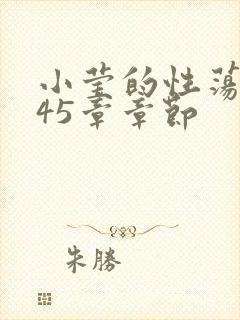 小莹的性荡
45章章节
朱勝